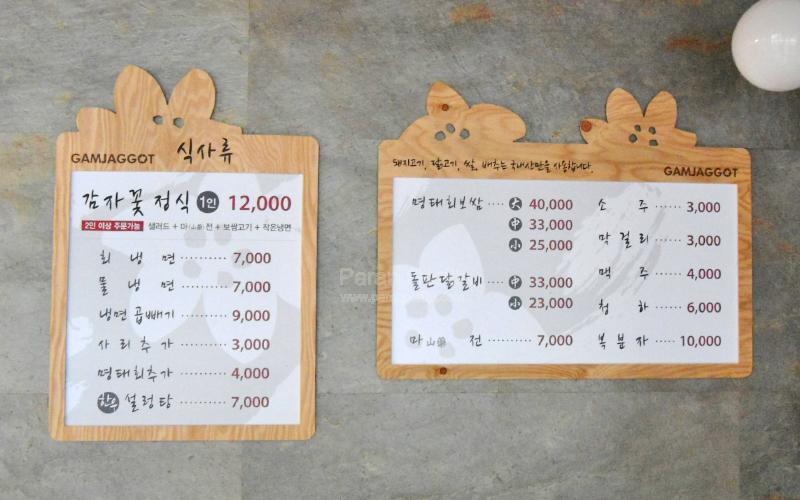 GAMJAGGOT 식사류
감자꽃 정식 1인 12,000
2인 이상 주문가능 샐러드 + 마(山藥)전 + 보쌈고기 + 작은냉면
회냉면 ·········· 7,000
물냉면 ·········· 7,000
냉면곱빼기 ········ 9,000
사리추가 ········· 3,000
명태회추가 ········ 4,000
한우 설렁탕 ········ 7,000
돼지고기, 닭고기, 쌀, 배추는 국내산만을 사용합니다.
GAMJAGGOT
명태회보쌈 ···· 大 40,000
中 33,000
小 25,000
돌판닭갈비 ···· 中 33,000
小 23,000
마山藥 전 ······ 7,000
소주 ····· 3,000
막걸리 ····· 3,000
맥주 ····· 4,000
청하 ····· 6,000
복분자 ····· 10,000